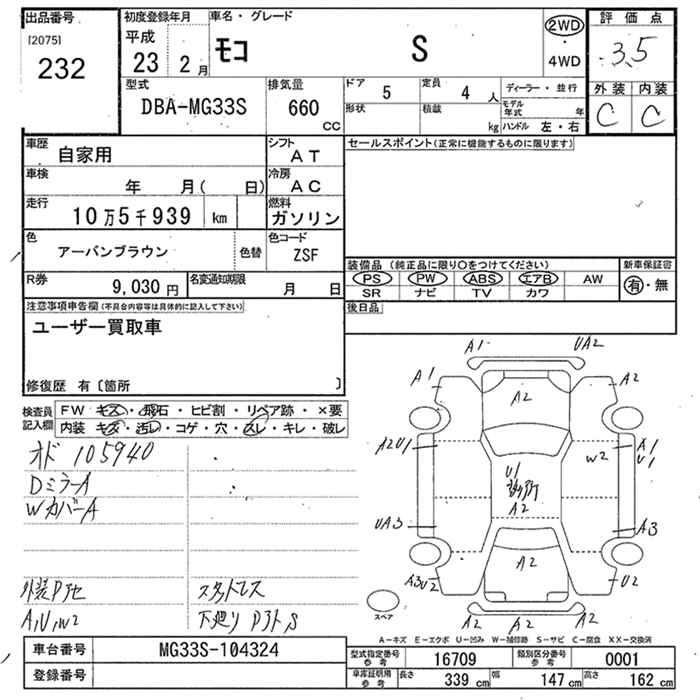 出品番号
[2075]
232
初度登録年月
平成
23 2 月
車名・グレード
モコ S
2WD
・
4WD
評価点
3.5
外装 内装
C C
型式
DBA-MG33S
排気量
660
CC
ドア 5
定員 4 人
形状
積載 kg
ディーラー・並行
モデル年式 年
ハンドル 左・右
車歴 自家用
シフト AT
セールスポイント(正常に機能するものに限ります)
車検 年 月( 日)
冷房 AC
走行 10万5千939 km
燃料 ガソリン
色 アーバンブラウン 色替
色コード ZSF
R券 9,030 円
名変通知期限 月 日
装備品 (純正品に限り○をつけてください)
新車保証書
PS PW ABS エアB AW
SR ナビ TV カワ
有・無
注意事項申告欄(不具合内容等は具体的に記入して下さい)
ユーザー買取車
後日品
修復歴 有〔箇所 〕
検査員記入欄
FW キズ・飛石・ヒビ割・リペア跡・×要
内装 キズ・汚レ・コゲ・穴・スレ・キレ・破レ
オド 105940
DミラーA
WカバーA
A,U,W2
スタッドレス
A1 UA2
A1 A2
A2
A2U1 W2 A1
U1
U1
多数所
A2
UA3 A3
A3U2 A2 U2
A2 A2 A2
スペア
A-キズ E-エクボ U-凹み W-補修跡 S-サビ C-腐食 XX-交換済
車台番号 MG33S-104324
登録番号
型式指定番号 参考 16709
類別区分番号 参考 0001
車庫証明用 参考 長さ 339 cm 幅 147 cm 高さ 162 cm